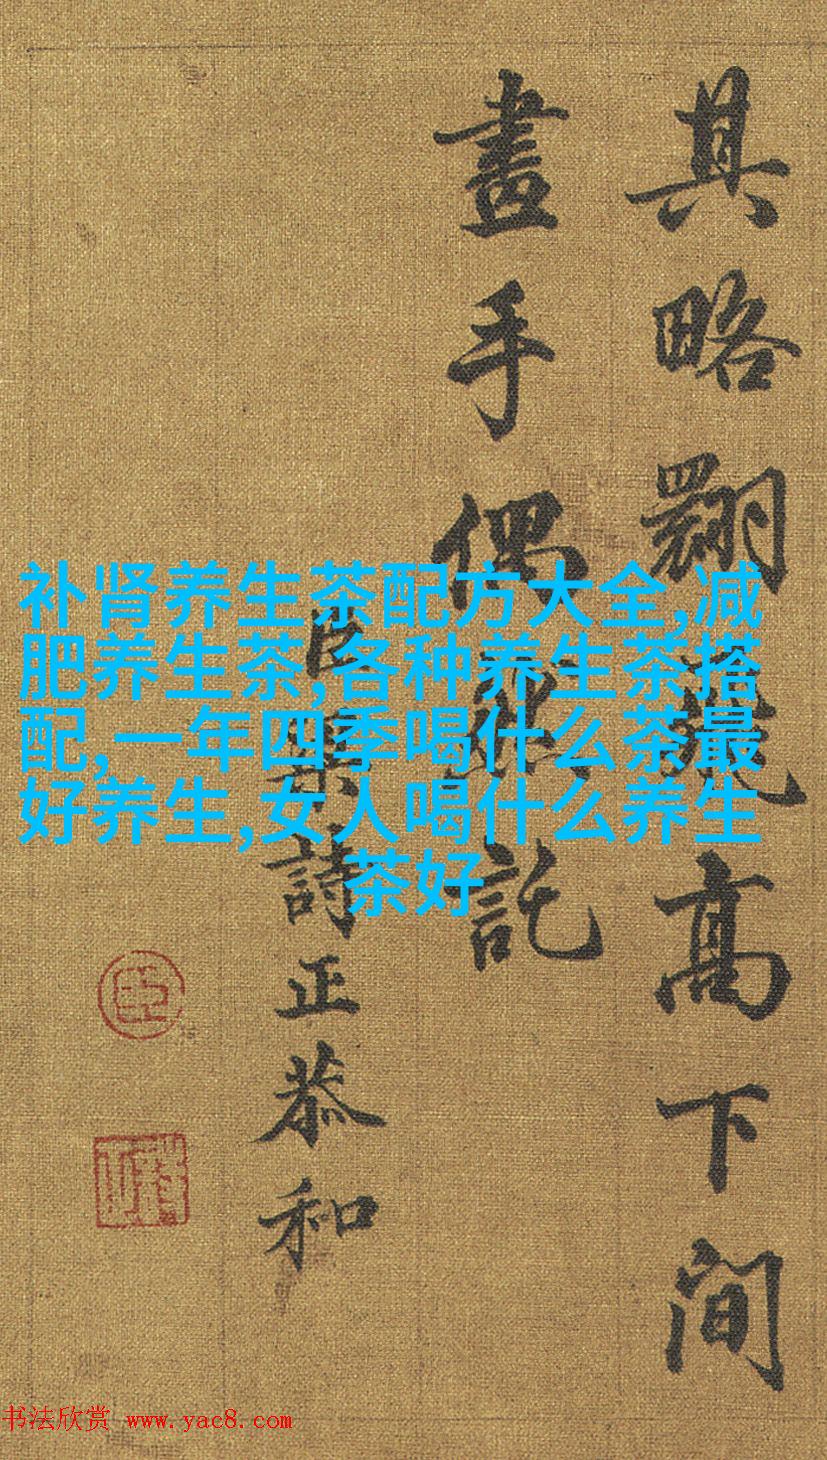 其略翺㴑高下间
畫手偶
託
臣
詩正恭和
补肾养生茶配方大全,减
肥养生茶,各种养生茶搭
配,一年四季喝什么茶最
好养生,女人喝什么养生
茶好
臣
书法欣赏 www.yac8.com